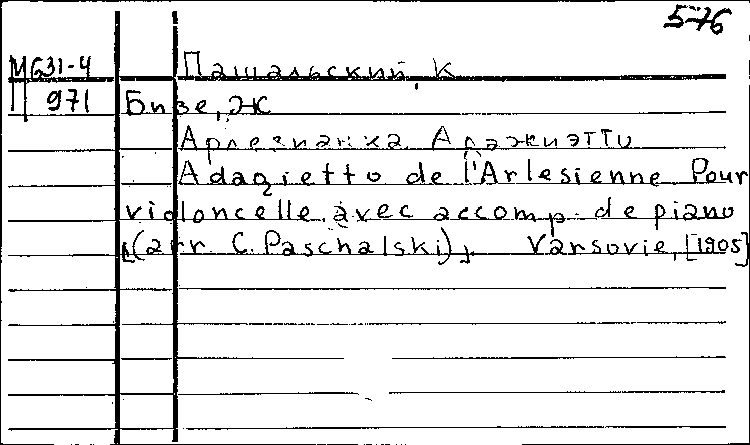 576
МG31-4 Пашальский, К
П 971 Бизе, Ж
Арлезианка Адажиэтто
Adagietto de l'Arlesienne Pour
violoncelle avec accomp. de piano
[(arr. C. Paschalski)]. Varsovie, [1905]